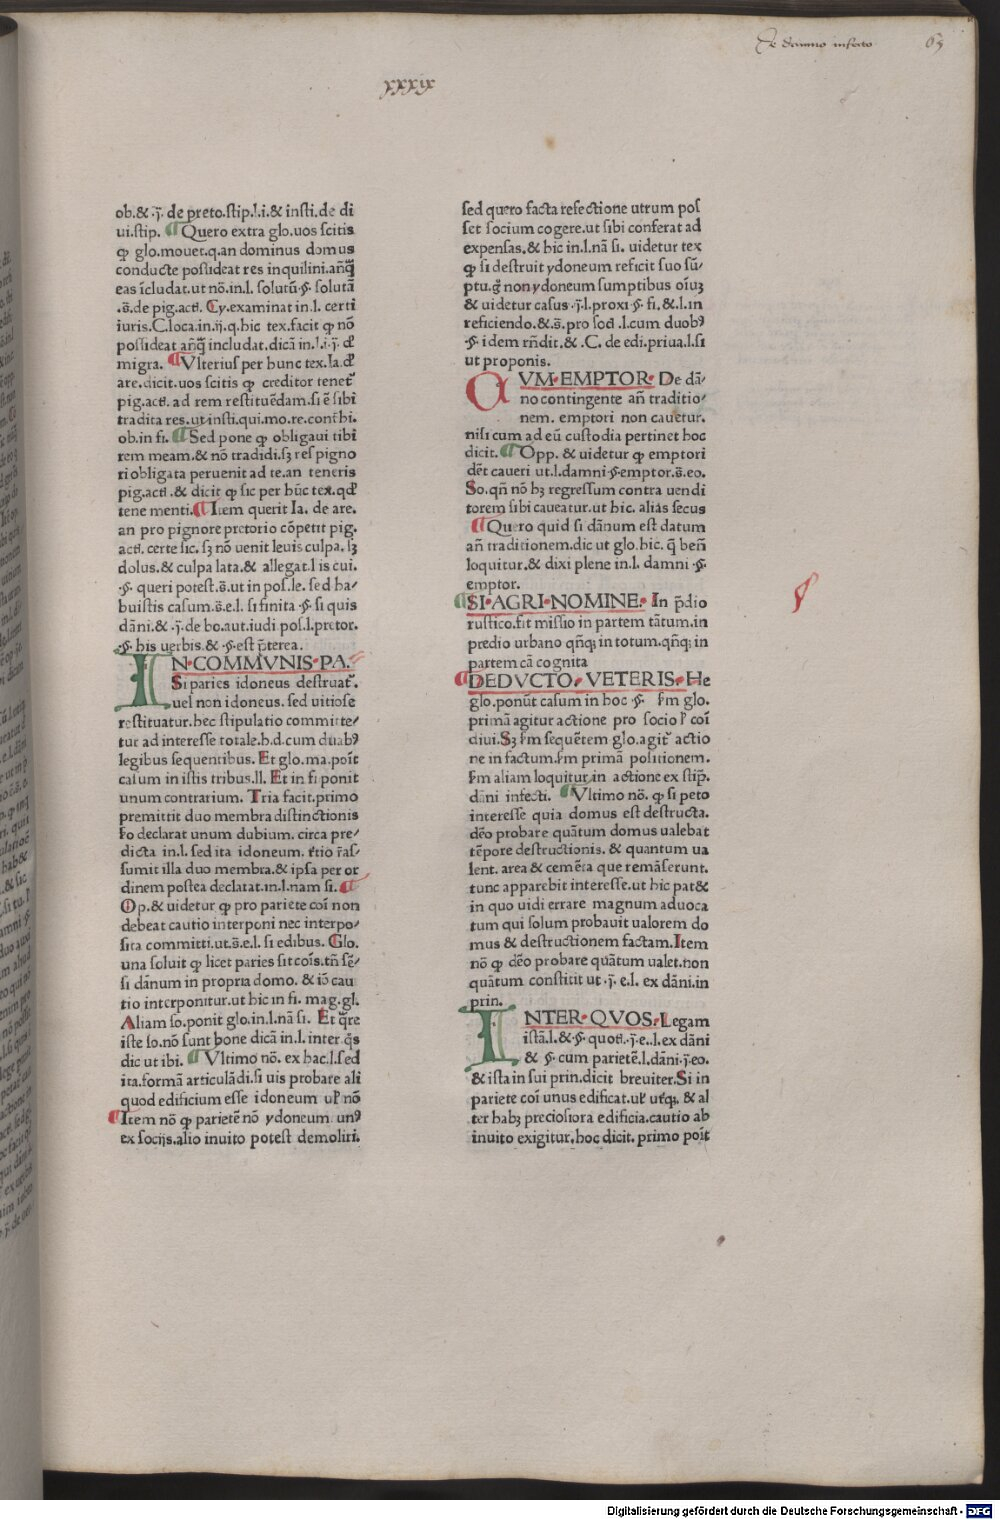 De damno infecto 69
xxxix
ob.&.ȷ̃. de preto.stip.l.i.& insti.de di
ui.stip. ¶Quero extra glo.uos scitis
ꝙ glo.mouet.q.an dominus domus
conducte possideat res inquilini.anq̃ꝫ
eas ĩcludat.ut nõ.in.l. solutũ.§. solutã
.s̃.de pig.actĩ. Cy.examinat in.l. certi
iuris.C.loca.in.ij.q.hic tex.facit ꝙ nõ
possideat anq̃ꝫ includat.dicã in.l.i.ȷ̃. ď
migra. ¶Vlterius per hunc tex.Ia.ď
are.dicit.uos scitis ꝙ creditor tenet᷑
pig.actĩ. ad rem restituẽdam.si ẽ sibi
tradita res.ut insti.qui.mo.re.contrhi.
ob.in fi. ¶Sed pone ꝙ obligaui tibi
rem meam.& nõ tradidi.sꝫ res pigno
ri obligata peruenit ad te.an teneris
pig.actĩ.& dicit ꝙ sic per hũc tex.qď
tene menti. ¶Item querit Ia. de are.
an pro pignore pretorio cõpetit pig.
actĩ. certe sic. sꝫ nõ uenit leuis culpa. sꝫ
dolus.& culpa lata.& allegat.l is cui.
.§. queri potest.s̃.ut in pos.le. sed ha/
buistis casum.s̃.e.l. si finita .§. si quis
dãni.& .ȷ̃. de bo.aut.iudi pos.l.pretor.
.§. his uerbis.& .§.est p̃terea.
IN.COMMVNIS.PA.
Si paries idoneus destruat᷑.
uel non idoneus. sed uitiose
restituatur.hec stipulatio committe/
tur ad interesse totale.h.d.cum duabꝰ
legibus sequentibus. Et glo.ma.poĩt
casum in istis tribus.ll. Et in fi ponit
unum contrarium. Tria facit.primo
premittit duo membra distinctionis
ẜo declarat unum dubium. circa pre/
dicta in.l. sed ita idoneum. t̃tio r̃as/
sumit illa duo membra.& ipsa per or
dinem postea declarat.in.l.nam si. ¶
Op.& uidetur ꝙ pro pariete coĩ non
debeat cautio interponi nec interpo/
sita committi.ut.s̃.e.l. si edibus. Glo.
una soluit ꝙ licet paries sit coĩs.tñ sẽ/
si dãnum in propria domo. & iõ cau
tio interponitur.ut hic in fi. mag.gl.
Aliam so.ponit glo.in.l.nã si. Et q̃re
iste so.nõ sunt bone dicã in.l. inter.q̃s
dic ut ibi. ¶Vltimo nõ. ex hac.l.sed
ita.formã articulãdi.si uis probare ali
quod edificium esse idoneum uľ nõ
¶Item nõ ꝙ parietẽ nõ ydoneum unꝰ
ex socijs.alio inuito potest demoliri.
sed quero facta refectione utrum pos
set socium cogere.ut sibi conferat ad
expensas.& hic in.l.nã si. uidetur tex
ꝙ si destruit ydoneum reficit suo sũ/
ptu.g̃ non ydoneum sumptibus oĩuꝫ
& uidetur casus .ȷ̃.l.proxi.§. fi.& .l.in
reficiendo.& .s̃. pro socĩ .l.cum duobꝰ
.§. idem rñdit.& .C. de edi.priua.l.si
ut proponis.
CVM.EMPTOR. De dã/
no contingente añ traditio/
nem. emptori non cauetur.
nisi cum ad eũ custodia pertinet hoc
dicit. ¶Opp. & uidetur ꝙ emptori
dẽt caueri ut.l.damni.§.emptor.s̃.eo.
So.qñ nõ hꝫ regressum contra uendi
torem sibi caueatur.ut hic. alias secus
¶Quero quid si dãnum est datum
añ traditionem.dic ut glo.hic. q̃ beñ
loquitur.& dixi plene in.l. damni .§.
emptor.
¶SI.AGRI.NOMINE. In p̃dio
rustico.fit missio in partem tãtum.in
predio urbano qñqꝫ in totum.qñqꝫ in
partem cã cognita
¶DEDVCTO. VETERIS. He
glo.ponũt casum in hoc .§. ẜm glo.
primã agitur actione pro socio ľ coĩ
diui.Sꝫ ẜm sequẽtem glo.agit᷑ actio
ne in factum.ẜm primã positionem.
ẜm aliam loquitur.in actione ex stip̃.
dãni infecti. ¶Vltimo nõ. ꝙ si peto
interesse quia domus est destructa.
dẽo probare quãtum domus ualebat
tẽpore destructionis. & quantum ua
lent. area & cemẽta que remãserunt.
tunc apparebit interesse.ut hic pat&
in quo uidi errare magnum aduoca
tum qui solum probauit ualorem do
mus & destructionem factam.Item
nõ ꝙ dẽo probare quãtum ualet.non
quãtum constitit ut .ȷ̃. e.l. ex dãni.in
prin.
INTER.QVOS.Legam
istã.l.& .§. quotĩ.ȷ̃.e..l.ex dãni
& .§. cum parietẽ.l.dãni.ȷ̃.eo.
& ista in sui prin.dicit breuiter.Si in
pariete coĩ unus edificat.uľ ut̃qꝫ. & al
ter habꝫ preciosiora edificia.cautio ab
inuito exigitur.hoc dicit. primo poĩt
Digitalisierung gefördert durch die Deutsche Forschungsgemeinschaft - DFG